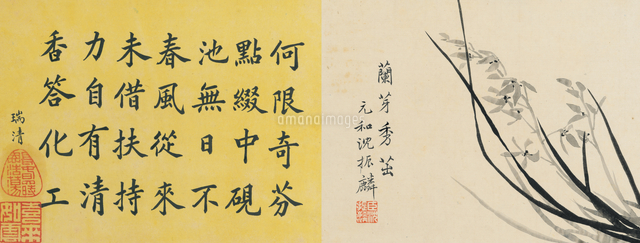 何限奇芬
點綴中硯
池無日不
春風從來
未借扶持
力自有清
香答化工
瑞清
蘭芽秀茁
元和沈振麟
amanaimages